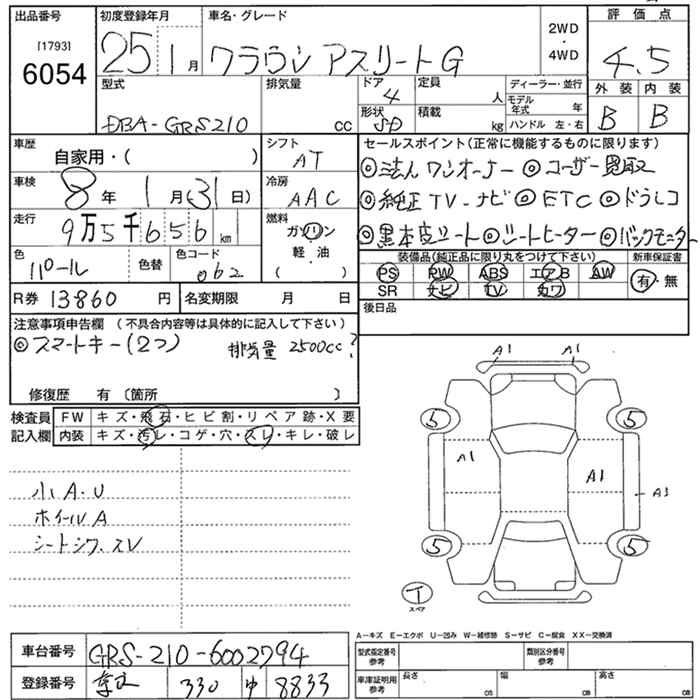 出品番号
[1793]
6054
初度登録年月
25 1 月
車名・グレード
クラウン アスリートG
2WD
・
4WD
評価点
4.5
外装 内装
B B
型式
DBA-GRS210
排気量
cc
ドア
4
形状
SD
定員
人
積載
kg
ディーラー・並行
モデル年式 年
ハンドル 左・右
車歴
自家用・( )
シフト
AT
車検
8 年 1 月(31 日)
冷房
AAC
走行
9万5千656 km
燃料
ガソリン
軽・油
( )
色
パール
色替
色コード
062
セールスポイント(正常に機能するものに限ります)
◎法人ワンオーナー ◎ユーザー買取
◎純正TV・ナビ ◎ETC ◎ドラレコ
◎黒本皮シート ◎シートヒーター ◎バックモニター
装備品(純正品に限り丸をつけて下さい)
PS PW ABS エアB AW
SR ナビ TV カワ
新車保証書
有・無
R券 13860 円
名変期限 月 日
後日品
注意事項申告欄 (不具合内容等は具体的に記入して下さい)
◎スマートキー(2つ)
排気量 2500cc?
修復歴 有〔箇所 〕
検査員記入欄
FW キズ・飛石・ヒビ割・リペア跡・X要
内装 キズ・汚レ・コゲ・穴・スレ・キレ・破レ
小A・U
ホイールA
シートシワ、スレ
A1 A1
5 5
A1 A1 A1
5 5
T
スペア
A-キズ E-エクボ U-凹み W-補修跡 S-サビ C-腐食 XX-交換済
車台番号 GRS-210-6002794
登録番号 330 ゆ 8833
型式指定番号 参考
類別区分番号 参考
車庫証明用 参考
長さ cm
幅 cm
高さ cm